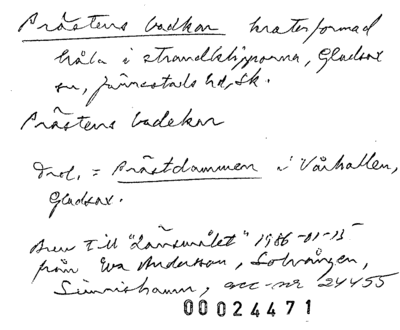 Prästens badkar kraterformad
håla i strandklipporna, Gladsax
sn, Järrestads hd, Sk.
Prästens badekar
Trol. = Prästdammen i Vårhallen,
Gladsax.
Brev till "Länsmålet" 1986-01-15
från Eva Andersson, Solvången,
Simrishamn, acc-nr 24455
00024471